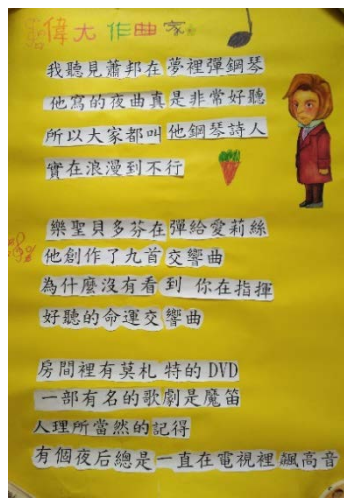 偉大作曲家
我聽見蕭邦在夢裡彈鋼琴
他寫的夜曲真是非常好聽
所以大家都叫他鋼琴詩人
實在浪漫到不行
樂聖貝多芬在彈給愛莉絲
他創作了九首交響曲
為什麼沒有看到你在指揮
好聽的命運交響曲
房間裡有莫札特的DVD
一部有名的歌劇是魔笛
人理所當然的記得
有個夜后總是一直在電視裡飆高音